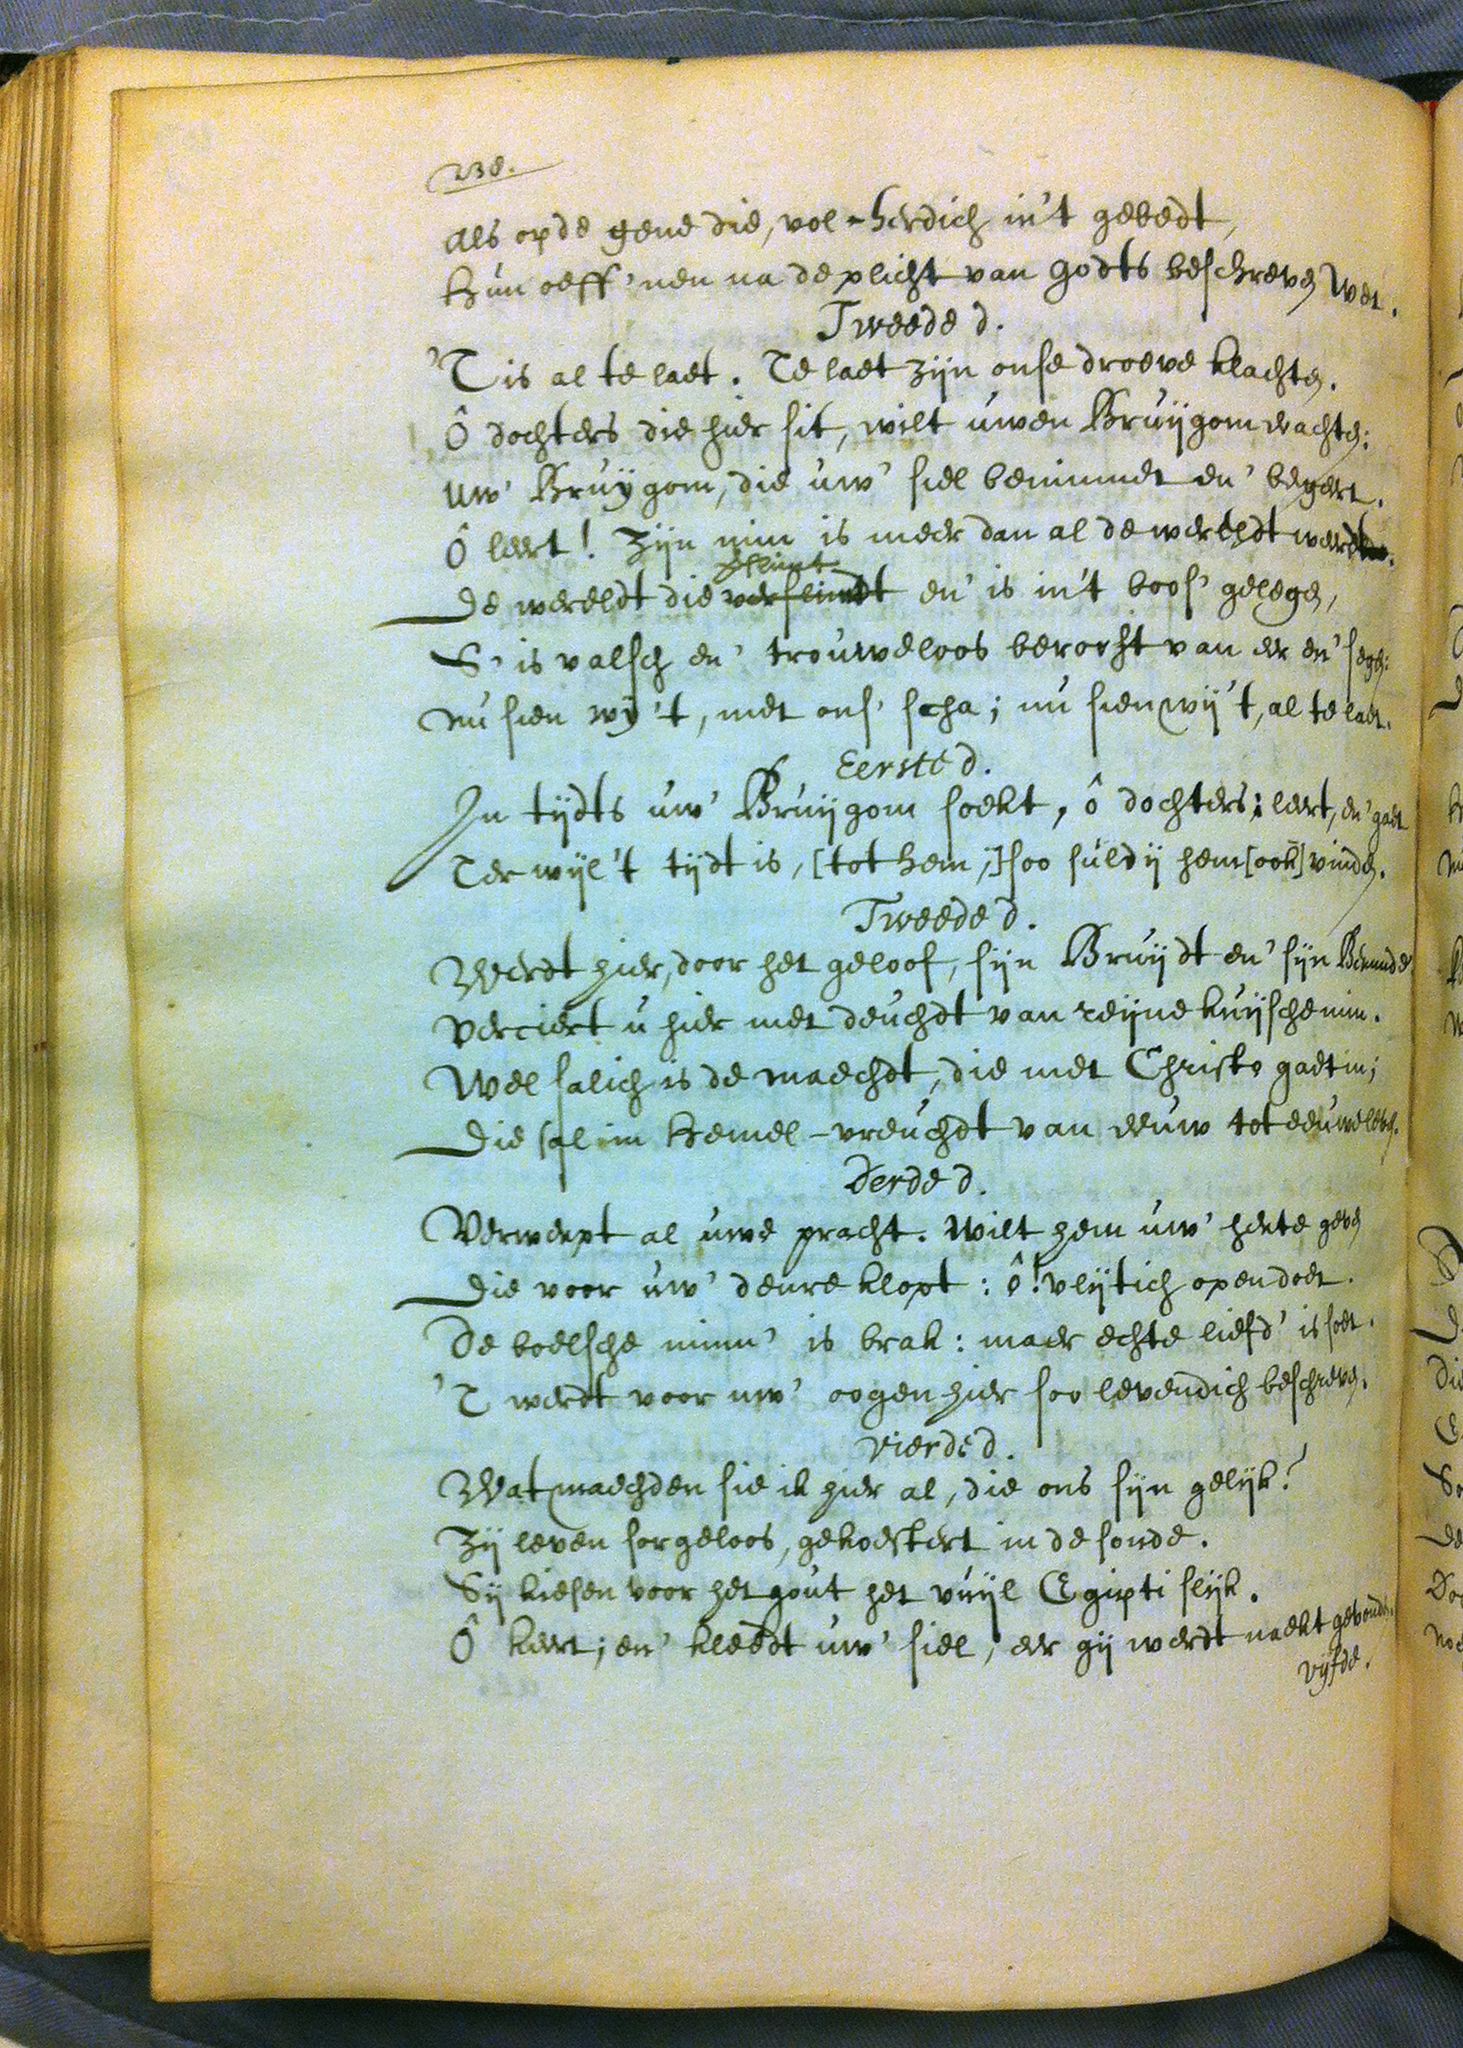 238.
Als op de gene die, vol-herdich in't gebedt,
Hun oeff'nen na de plicht van Godts beschreven Wet.
Tweede d.
'T is al te laet. Te laet zijn onse droeve klachten.
Ô dochters die hier sit, wilt uwen Bruijgom wachten:
Uw' Bruijgom, die uw' siel bemimmet en' begert.
Ô leert! Zijn min is meer dan al de wereldt weerdt.
De wereldt die verslindt en' is in't boos' gelegen,
S' is valsch en' trouweloos berooft van eer en' segen:
Nu sien wy't, met ons' scha; nu sien wij't, al te laet.
Eerste d.
In tijdts uw' Bruijgom soekt, ô dochters; leert, en' gaet
Terwijl 't tijdt is, [tot hem,] soo suldij hem [ook] vinden.
Tweede d.
Werdt hier, door het geloof, sijn Bruijdt en' sijn Beminde
Verciert u hier met deuchdt van reijne kuijsche min.
Wel salich is de maechdt, die met Christo gaet in;
Die sal in Hemel-vreuchdt van eeuw tot eeuw leven.
Derde d.
Verwerpt al uwe pracht. Wilt hem uw' herte geven
Die voor uw' deure klopt: ô! vlijtich open doet.
De boelsche minn' is brak: maer echte liefd' is soet.
'T werdt voor uw' oogen hier soo levendich beschreven.
Vierde d.
Wat maechden sie ik hier al, die ons sijn gelijk?
Zij leven sorgeloos, gekoestert in de sonde.
Sij kiesen voor het gout het vuijl Egipti slijk.
Ô keert; en' kleedt uw' siel, eer gij werdt naekt gevonden.
Vijfde.